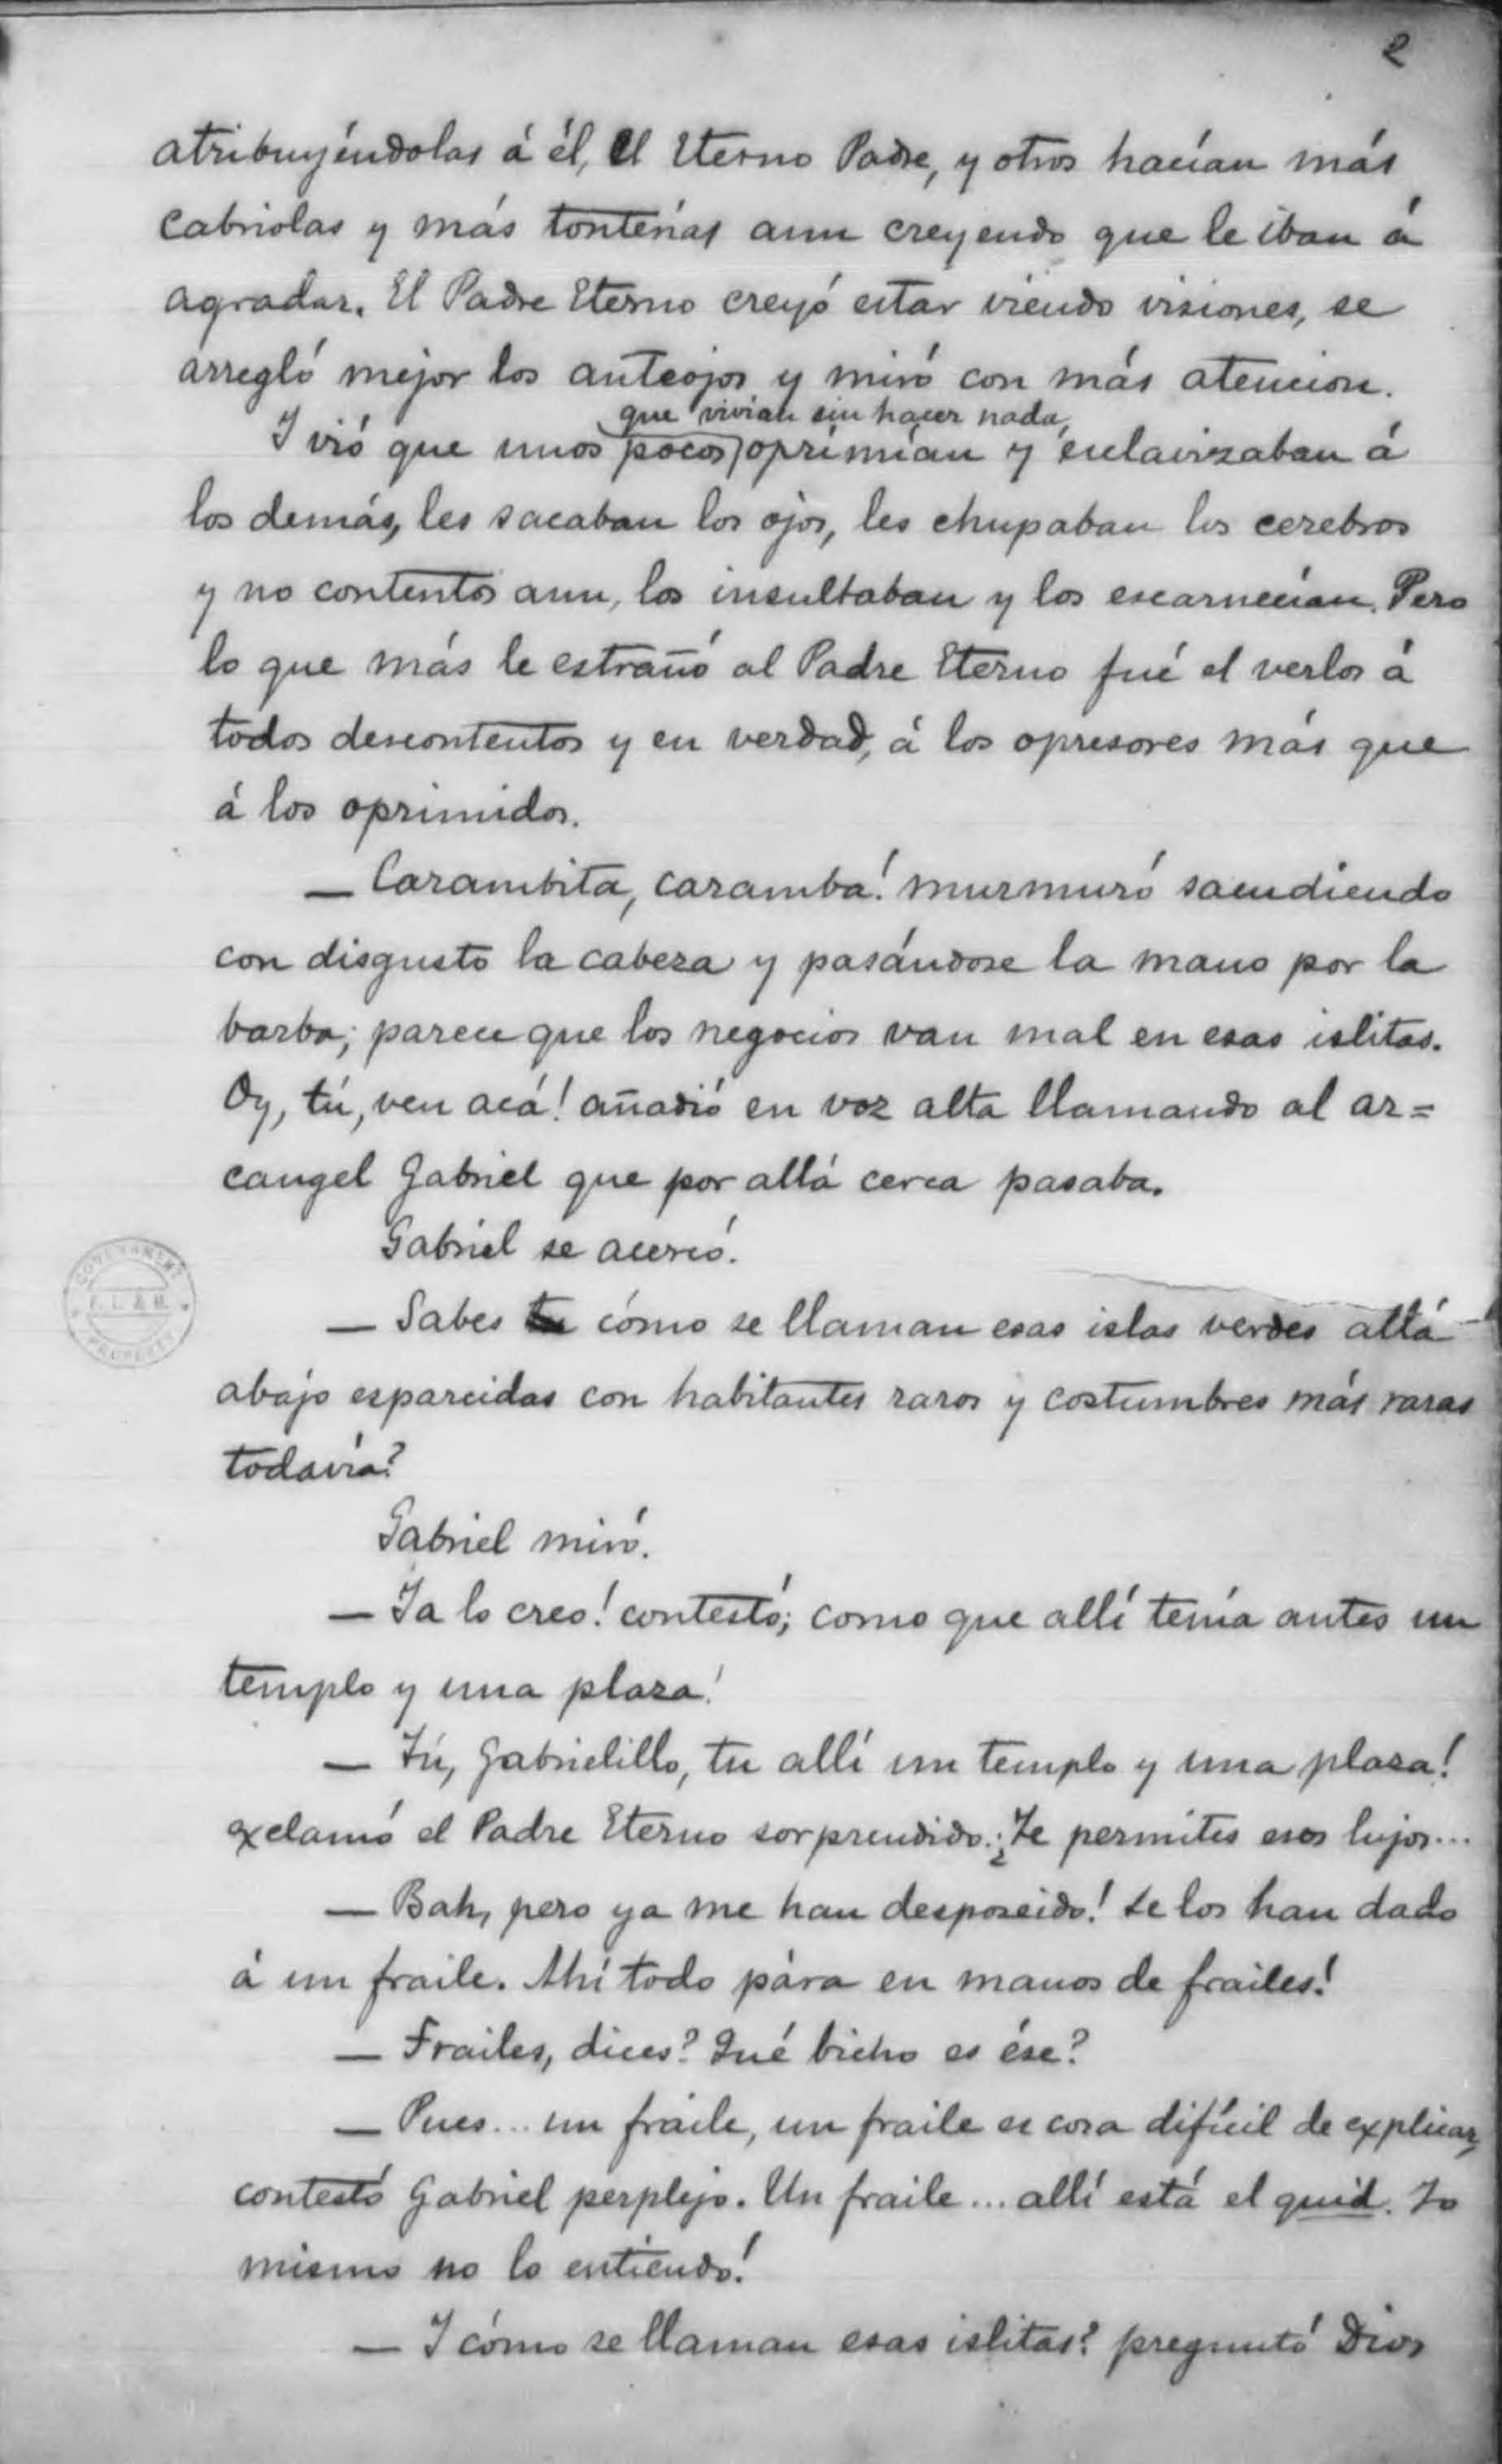 2
atribuyéndolas á él, el Eterno Padre, y otros hacían más
cabriolas y más tonterías aun creyendo que le iban á
agradar. El Padre Eterno creyó estar viendo visiones, se
arregló mejor los anteojos y miró con más atencion.
que vivian sin hacer nada,
I vió que unos pocos oprimían y esclavizaban á
los demás, les sacaban los ojos, les chupaban los cerebros
y no contentos aun, los insultaban y los escarnecían. Pero
lo que más le estrañó al Padre Eterno fué el verlos á
todos descontentos y en verdad, á los opresores más que
á los oprimidos.
— Carambita, caramba! murmuró sacudiendo
con disgusto la cabeza y pasándose la mano por la
barba; parece que los negocios van mal en esas islitas.
Oy, tú, ven acá! añadió en voz alta llamando al ar=
cangel Gabriel que por allá cerca pasaba.
Gabriel se acercó.
— Sabes tu cómo se llaman esas islas verdes allá
abajo esparcidas con habitantes raros y costumbres más raras
todavía?
Gabriel miró.
— Ya lo creo! contestó; como que allí tenía antes un
templo y una plaza!
— Tú, Gabrielillo, tu allí un templo y una plaza!
exclamó el Padre Eterno sorprendido. ¿Te permites esos lujos...
— Bah, pero ya me han desposeido! se los han dado
á un fraile. Ahí todo pára en manos de frailes!
— Frailes, dices? Qué bicho es ése?
— Pues... un fraile, un fraile es cosa difícil de explicar,
contestó Gabriel perplejo. Un fraile... allí está el quid. Yo
mismo no lo entiendo!
— I cómo se llaman esas islitas? preguntó Dios
GOVERNMENT
P. L. & M.
PROPERTY